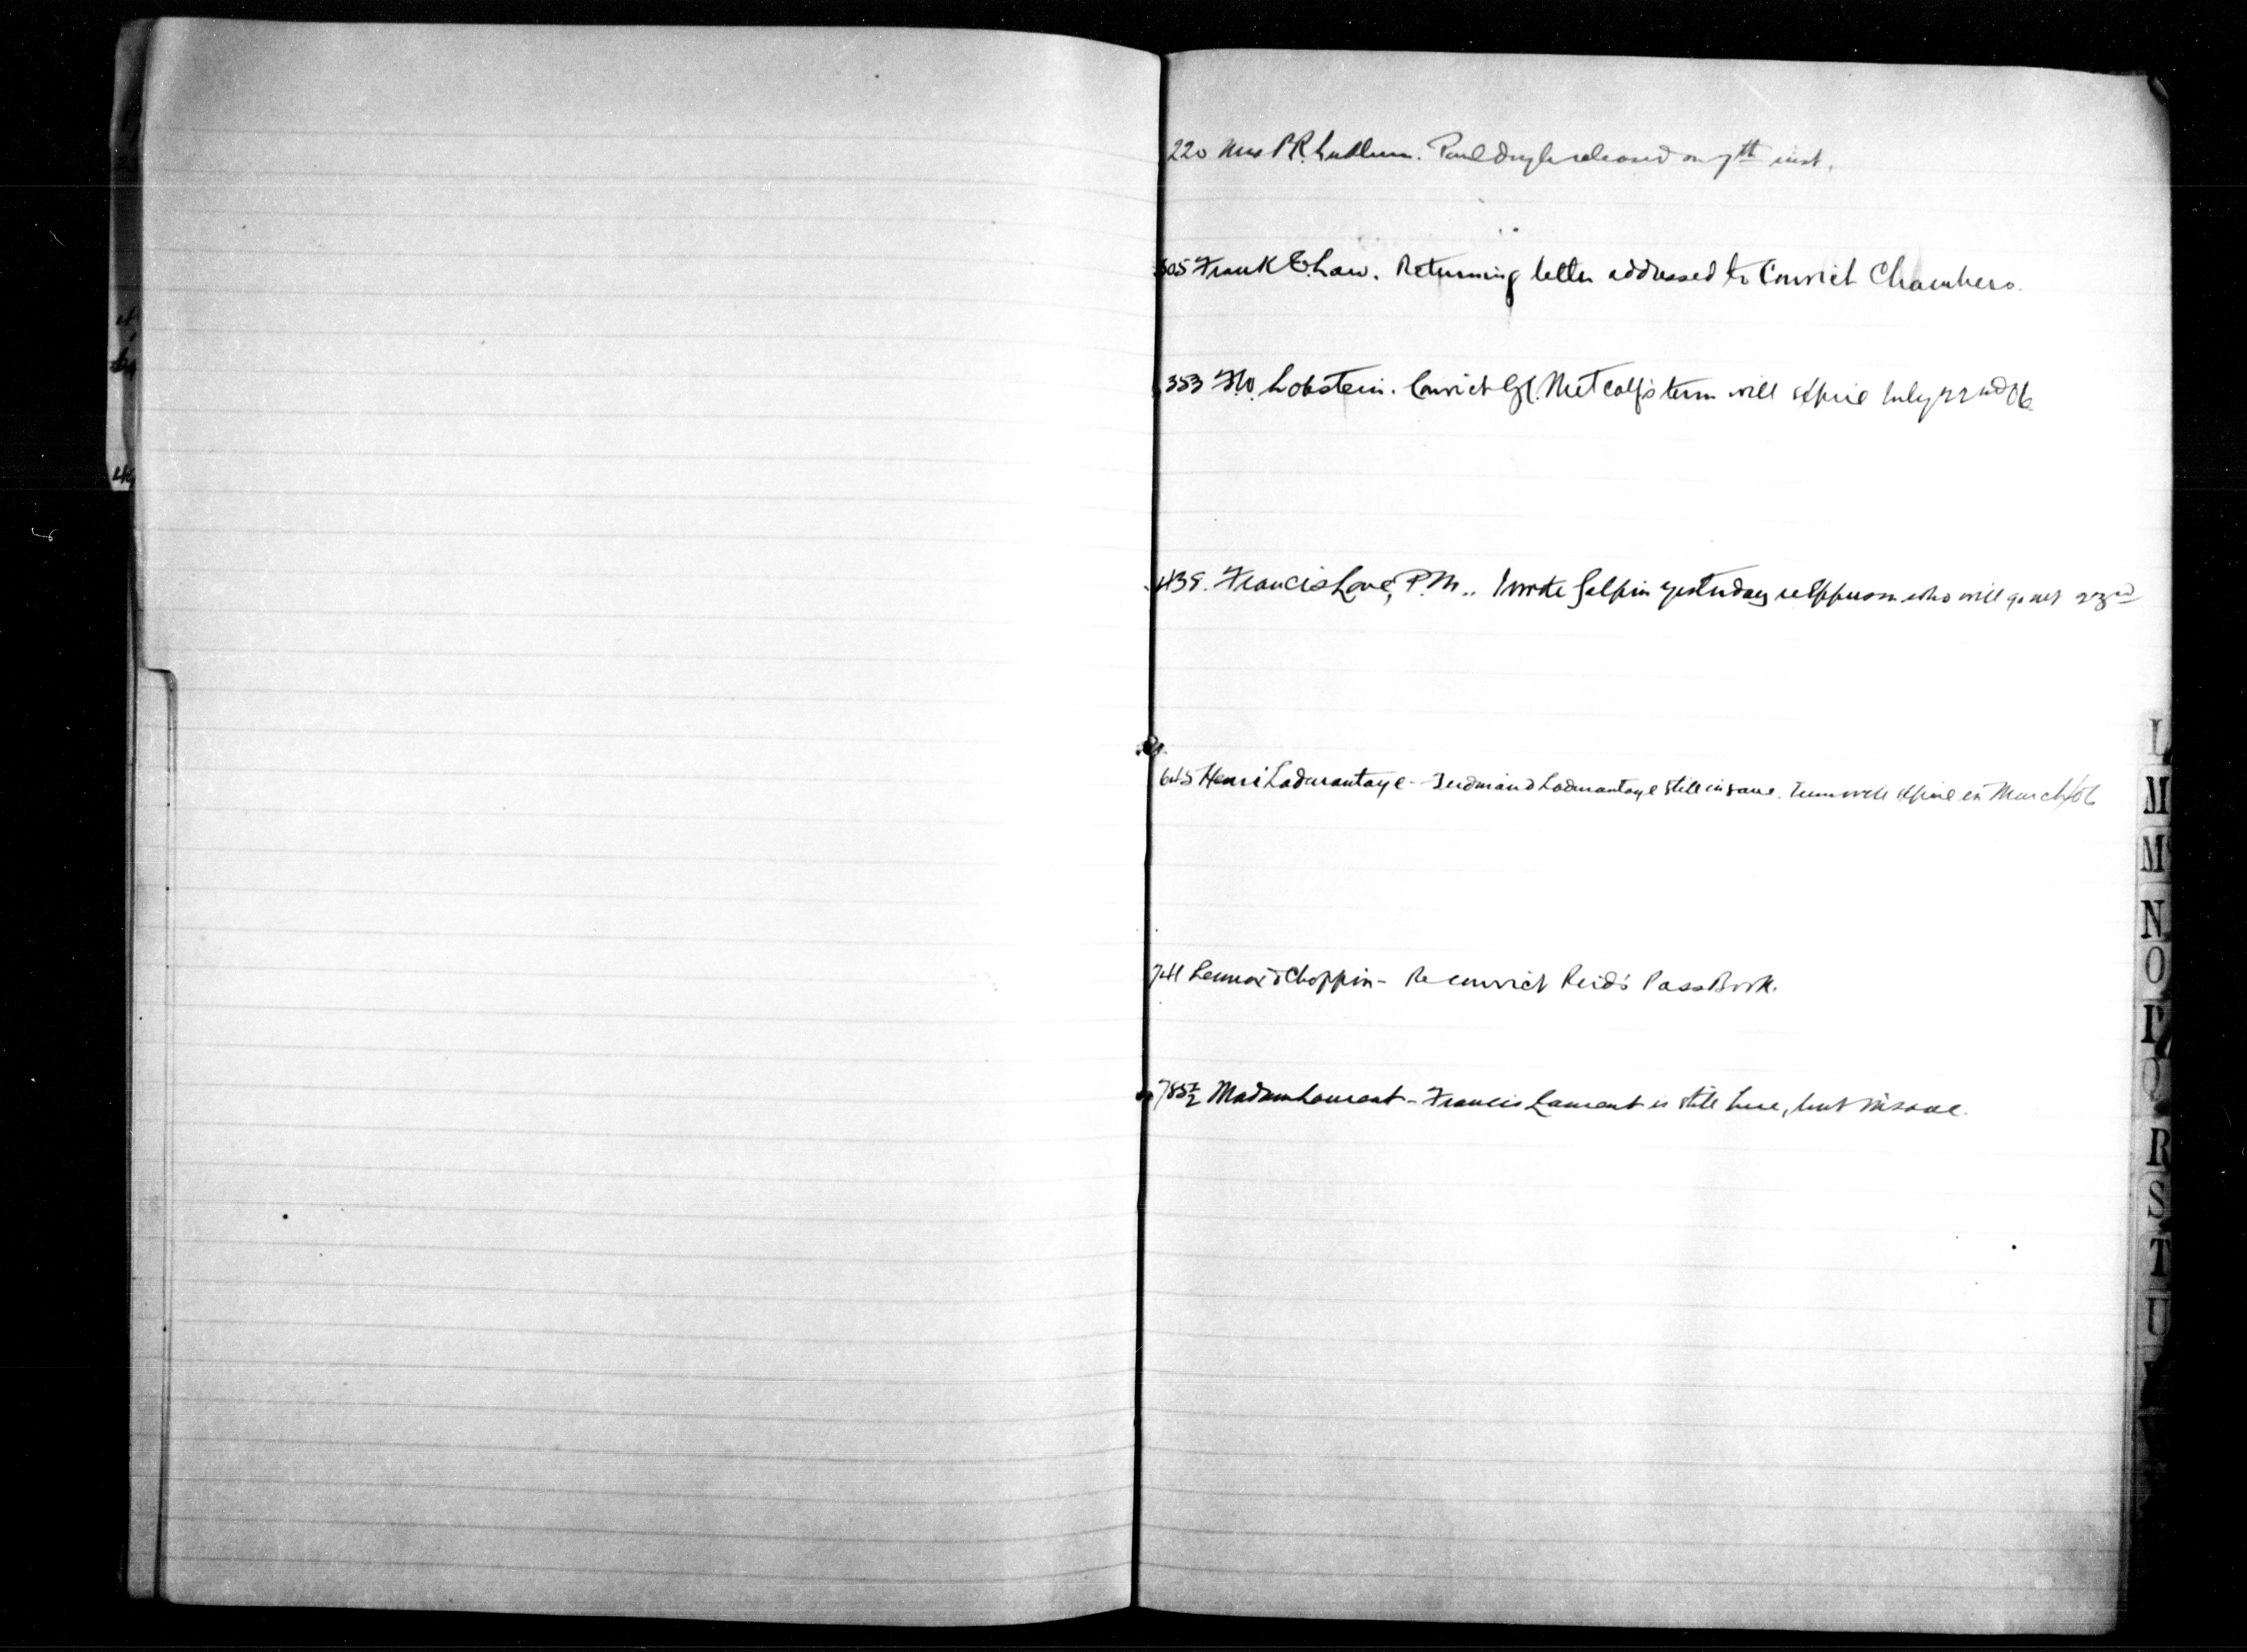 220 Mrs P.R. Ludlum. Paul Doyle released on 7th inst.
305 Frank E. Law. Returning letter addressed to Convict Chambers.
353 F.W. Lobstein. Convict Metcalf's term will expire July 22nd 06
439. Francis Love, P.M.. I wrote Galpin yesterday re Epperson who will go out 23rd
645 Henri Ladmantaye - Ferdinand Ladmantaye still insane. Term will expire in March/06
741 Lennox & Choppin - Re convict Reid's Pass Book.
785½ Madam Laurent - Francis Laurent is still here, but insane.
L
M
M
N
O
P
Q
R
S
T
U